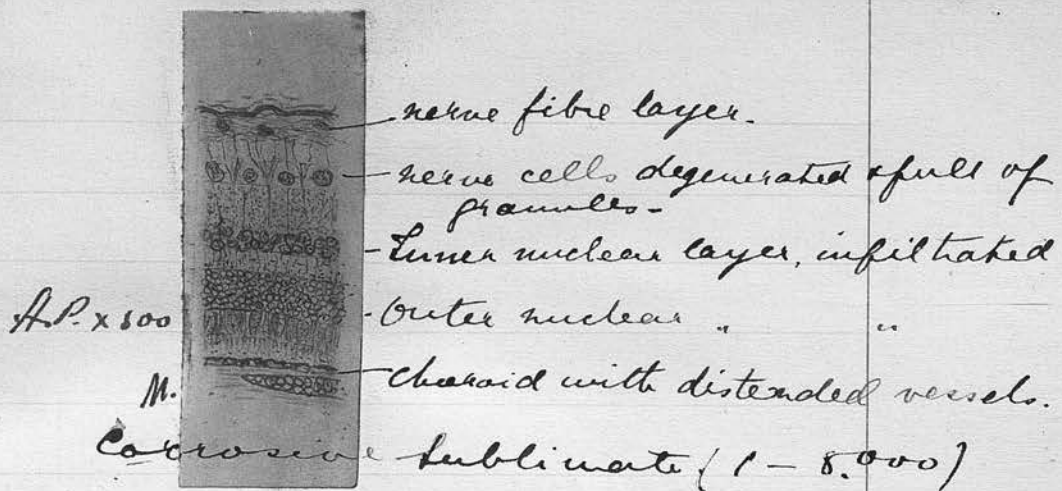 nerve fibre layer.
nerve cells degenerated & full of
granules-
Inner nuclear layer, infiltrated
A.P. x 300
Outer nuclear " "
M.
Choroid with distended vessels.
Corrosive Sublimate (1 - 8,000)